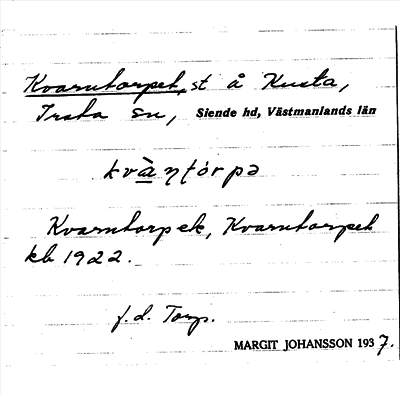 Kvarntorpet, st å Kusta,
Irsta sn, Siende hd, Västmanlands län
kvàṇṭórpə
Kvarntorp ek, Kvarntorpet
kb 1922.
f.d. Torp.
MARGIT JOHANSSON 1937.